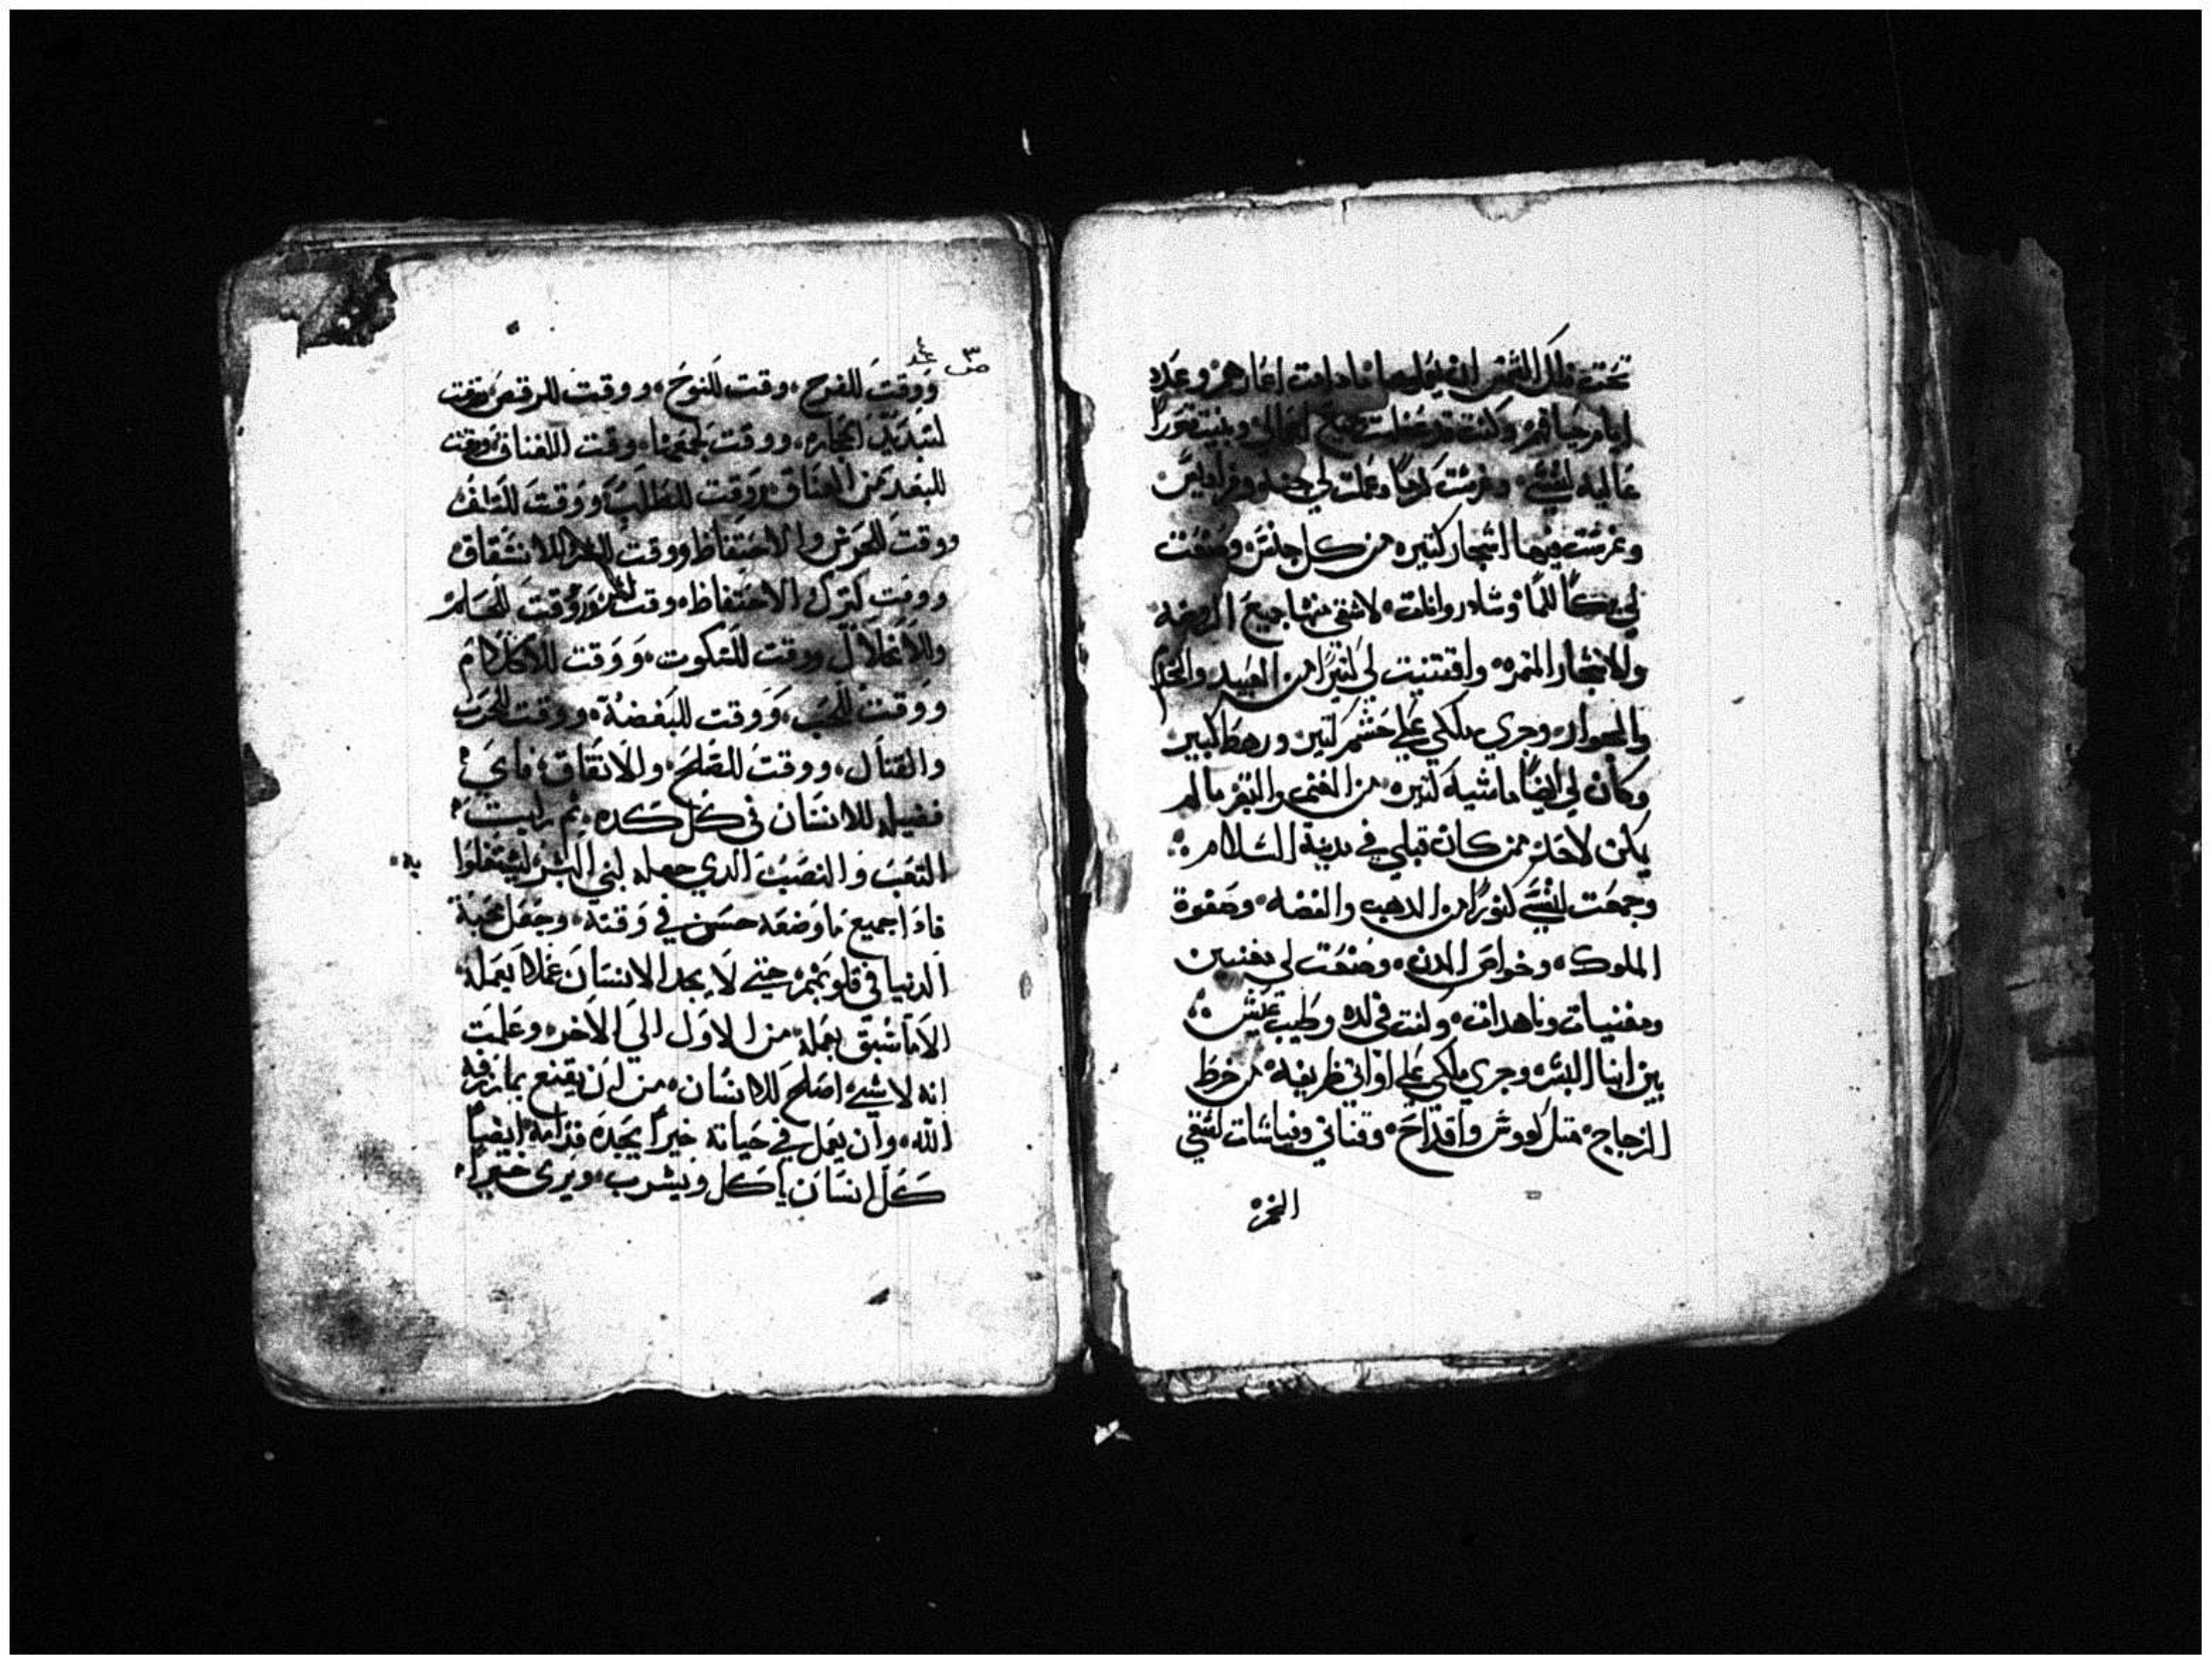 تحت فلك الشمس ان يعملوها مادامت اعمارهم وعدد
ايام حياتهم وكنت قد عظمت جميع اعمالي وبنيت قصورا
عاليه لنفسي وغرست كرما وعملت لي جنه وفراديس
وغرست فيها اشجار كتيره من كل جنس وصنعت
لي بركا للما وشادروانات لاسقي منها جميع الروضه
والاشجار المثمره واقتنيت لي كثيرا من العبيد والخدم
والجوار وجري ملكي علي حشم كتير ورهط كبير
وكان لي ايضا ماشيه كتيره من الغنم والبقر ما لم
يكن لاحد ممن كان قبلي في مدينة السلام
وجمعت لنفسي كنوزا من الدهب والفضه وصفوة
الملوك وخواص المدن وصنعت لي مغنيين
ومغنيات وناهدات وكنت في لده وطيب عيش
بين ابنا البشر وجري ملكي علي اواني ظريفه من خرط
الزجاج متل كووس واقداح وقناني وفياشات لسقي
الخمر
ص ٣
ووقت للفرح، وقت للنوح، ووقت للرقص ووقت
لتبديد الحجاره، ووقت لجمعها، وقت للعناق ووقت
للبعد من العناق ووقت للطلب ووقت للتلف
ووقت للحرص والاحتفاظ ووقت للانشقاق
ووقت لترك الاحتفاظ، وقت ووقت للسلم
وللانحلال ووقت للسكوت، ووقت للكلام
ووقت للحب، ووقت للبغضة، ووقت للحرب
والقتال، ووقت للصلح، والاتفاق، فاي
فضيله للانسان في كل كده، ثم رايت
التعب والنصب الدي جعله لبني البشر ليشتغلوا
به
فادا جميع ما وضعه حسن في وقته، وجعل محبة
الدنيا في قلوبهم حتي لا يجد الانسان عملا يعمله
الا ما سبق بعمله من الاول الي الاخر وعلمت
انه لا شي اصلح للانسان، من ان يقنع بما رزقه
الله، وان يعمل في حياته خيرا يجده قدامه ايضا
كل انسان ياكل ويشرب، ويري خيرا